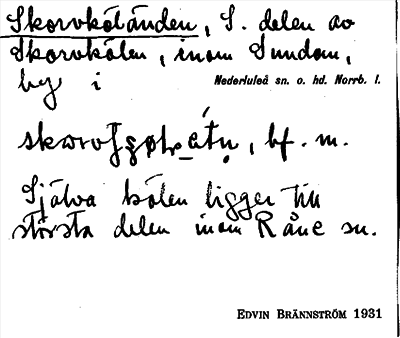 Skorvkölånden, S. delen av
Skorvkölen, inom Sundom,
by i Nederluleå sn. o. hd. Norrb. l.
bf. m.
Själva kölen ligger till
största delen inom Råne sn.
EDVIN BRÄNNSTRÖM 1931